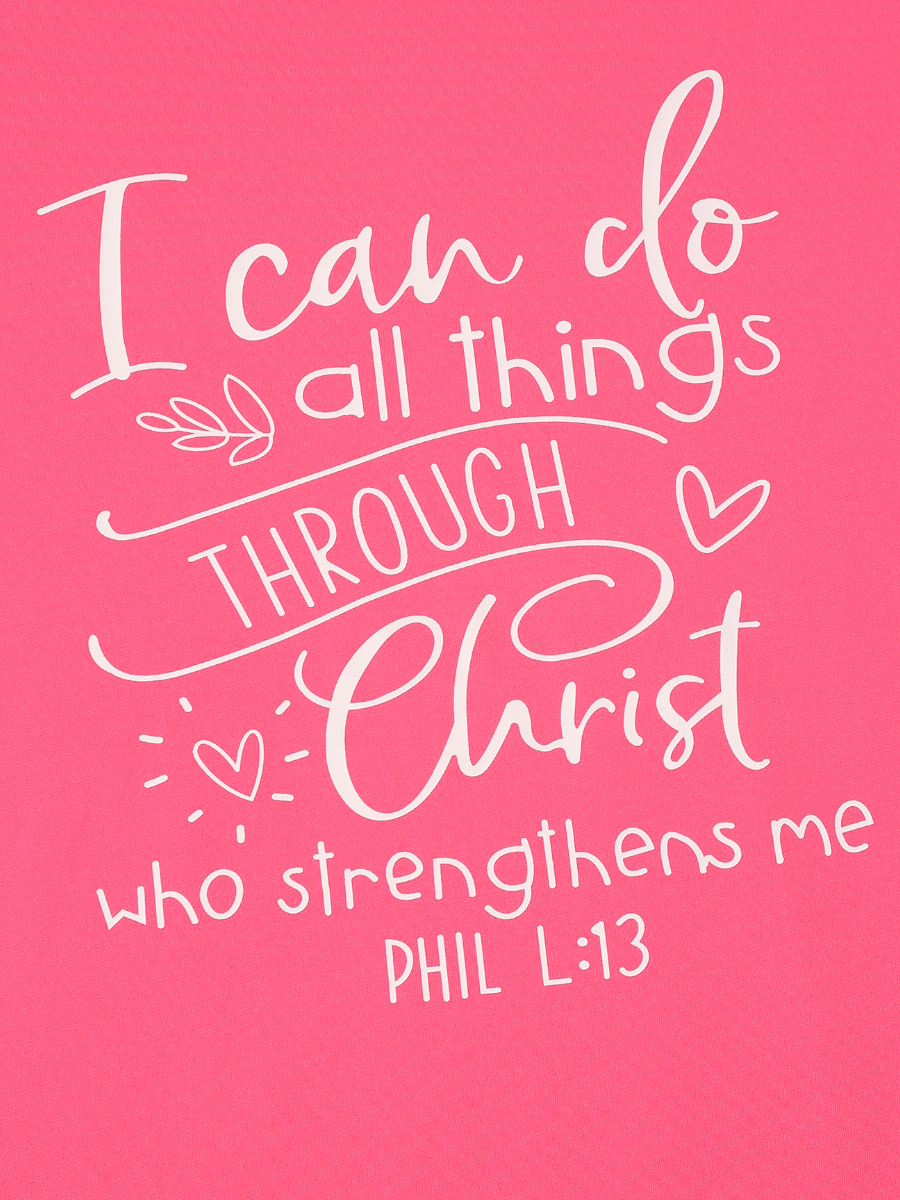 I can do
all things
THROUGH
Christ
who strengthens me
PHIL L:13